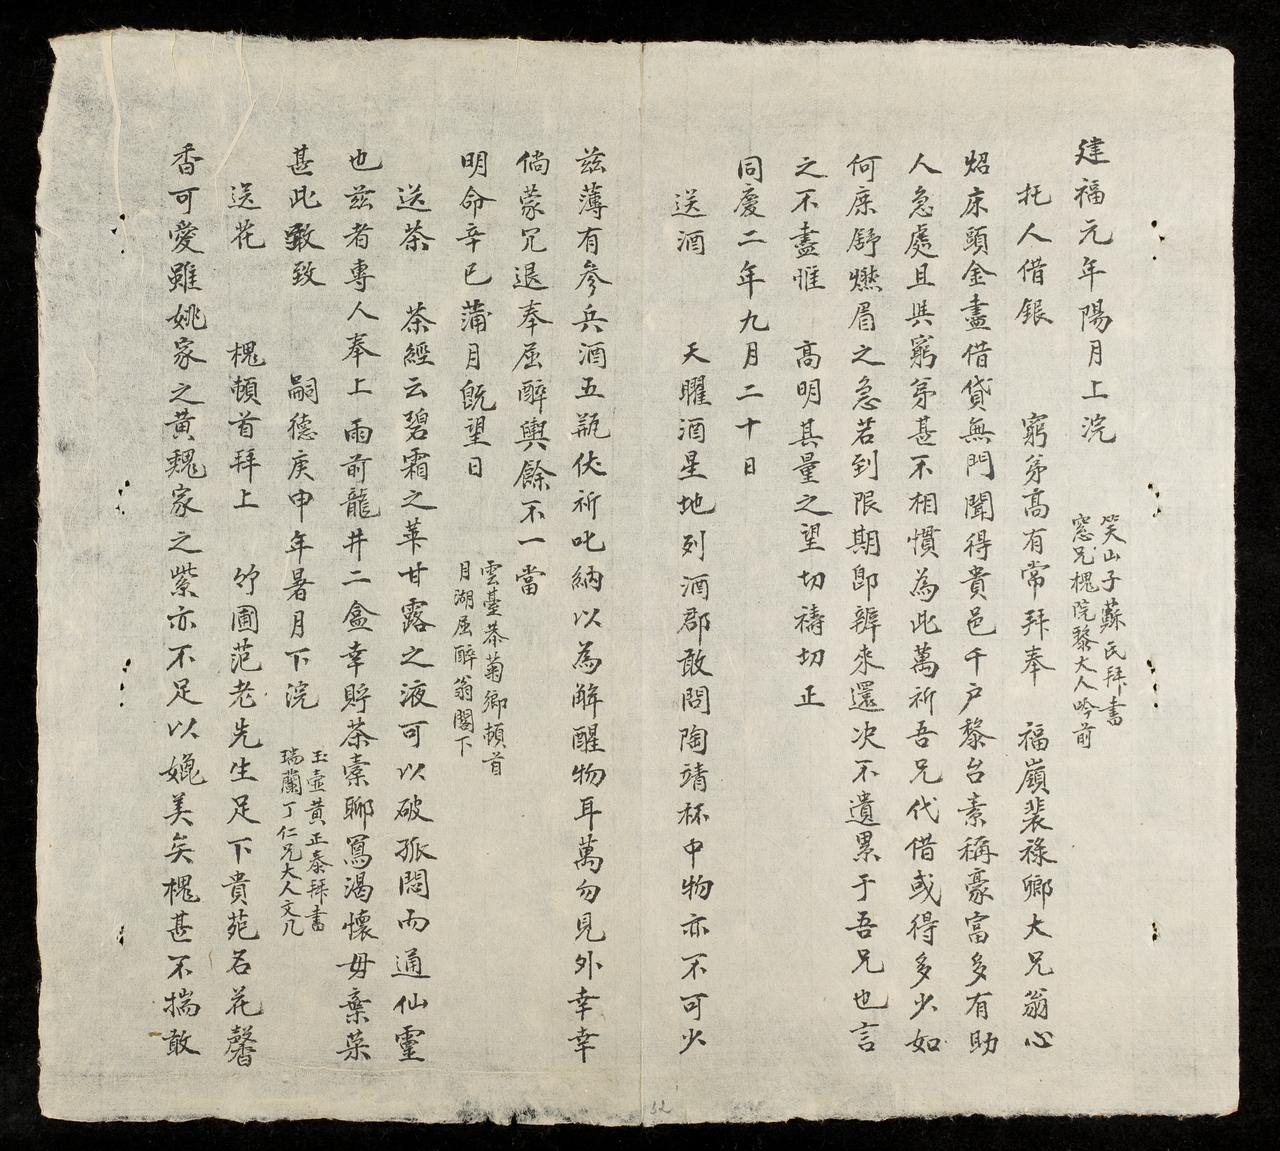 建福元年陽月上浣
笑山子蘇氏拜書
窓兄槐院黎大人吟前
托人借銀 窮弟高有常拜奉 福嶺裴祿鄉大兄翁心
炤床頭金盡借貸無門聞得貴邑千户黎台素稱豪富多有助
人急處且與窮弟甚不相慣為此萬祈吾兄代借或得多少如
何庶舒燃眉之急若到限期即辨來還次不遺累于吾兄也言
之不盡惟 高明其量之望切禱切正
同慶二年九月二十日
送酒 天曜酒星地列酒郡敢問陶靖杯中物亦不可少
玆薄有參兵酒五瓶伏祈叱納以為解酲物耳萬勿見外幸幸
倘蒙冗退奉屈醉輿餘不一當
明命辛巳蒲月旣望日
雲臺恭菊卿頓首
月湖屈醉翁閣下
送茶 茶經云碧霜之華甘露之液可以破孤悶而通仙靈
也玆者專人奉上雨前龍井二盒幸貯茶橐聊寫渴懷毋棄菜
甚此敢致 嗣德庚申年暑月下浣
玉壺黄正泰拜書
瑞蘭丁仁兄大人文几
送花 槐頓首拜上 竹圃范老先生足下貴苑名花馨
香可愛雖姚家之黄魏家之紫亦不足以媲美矣槐甚不揣敢
52